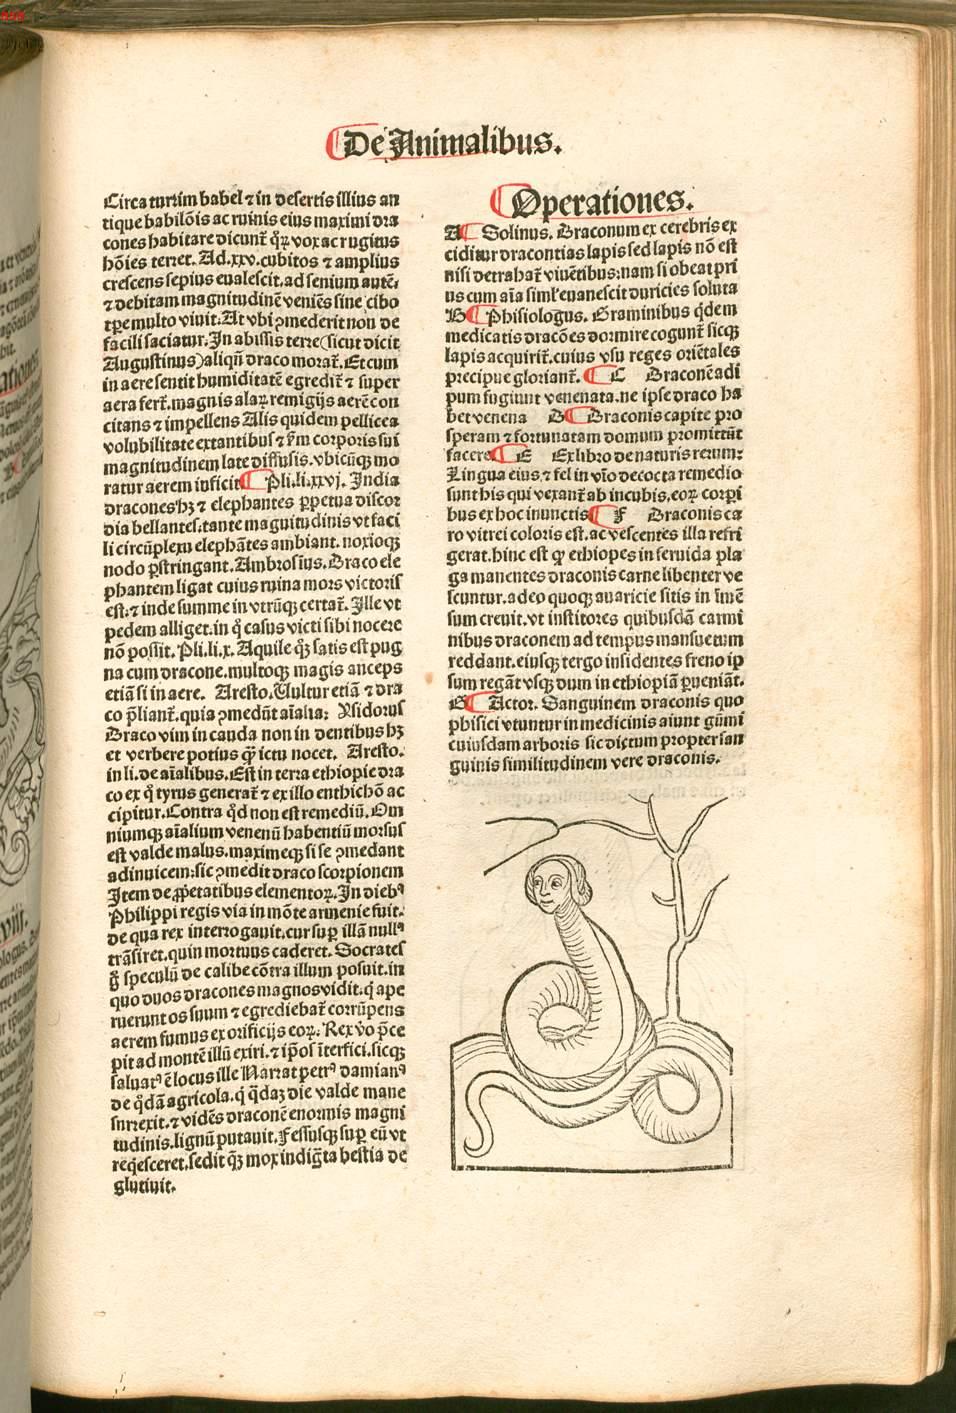 De Animalibus.
Circa turrim babel ⁊ in desertis illius an
tique babilōis ac ruinis eius maximi dra
cones habitare dicunt᷑ qꝝ vox ac rugitus
hōies terret. Ad .xxv. cubitos ⁊ amplius
crescens sepius eualescit. ad senium autē,
⁊ debitam magnitudinē veniēs sine cibo
tꝑe multo viuit. At vbi ꝯmederit non de
facili saciatur. In abissis terre (sicut dicit
Augustinus) aliqñ draco morat᷑. Et cum
in aere sentit humiditatē egredit᷑ ⁊ super
aera fert᷑. magnis alaꝝ remigijs aerē con
citans ⁊ impellens Alis quidem pellicea
volubilitate extantibus ⁊ ẜm corporis sui
magnitudinem late diffusis. vbicūqꝫ mo
ratur aerem inficit Pli. li. xxvj. India
dracones hꝫ ⁊ elephantes ꝑpetua discor
dia bellantes. tante magnitudinis vt faci
li circūplexu elephātes ambiant. noxioqꝫ
nodo ꝑstringant. Ambrosius. Draco ele
phantem ligat cuius ruina mors victoris
est. ⁊ inde summe in vtrūqꝫ certat᷑. Ille vt
pedem alliget. in q̇ casus victi sibi nocere
nō possit. Pli. li. x. Aquile qꝫ satis est pug
na cum dracone. multoqꝫ magis anceps
etiā si in aere. Aresto. Uultur etiā ⁊ dra
co p̄liant᷑. quia ꝯmedūt aīalia: Ysidorus
Draco vim in cauda non in dentibus hꝫ
et verbere potius q̄ꝫ ictu nocet. Aresto.
in li. de aīalibus. Est in terra ethiopie dra
co ex q̇ tyrus generat᷑ ⁊ ex illo enthichō ac
cipitur. Contra q̇d non est remediū. Om
niumqꝫ aīalium venenū habentiū morsus
est valde malus. maximeqꝫ si se ꝯmedant
adinuicem: sic ꝯmedit draco scorpionem
Item de ꝓprietatibus elementoꝝ. In diebꝰ
Philippi regis via in mōte armenie fuit.
de qua rex interrogauit. cur suꝑ illā nullꝰ
trāsiret. quin mortuus caderet. Socrates
g̊ speculū de calibe cōtra illum posuit. in
quo duos dracones magnos vidit. q̇ ape
ruerunt os suum ⁊ egrediebat᷑ corrūpens
aerem fumus ex orificijs eoꝝ. Rex v̊o p̄ce
pit ad montē illū exiri. ⁊ ip̄os īterfici. sicqꝫ
saluatꝰ ē locus ille Narrat petrꝰ damianꝰ
de q̇dā agricola. q̇ q̇daꝫ die valde mane
surrexit. ⁊ vidēs draconē enormis magni
tudinis. lignū putauit. Fessusqꝫ suꝑ eū vt
reqͥesceret. sedit qꝫ mox indigͣta bestia de
glutiuit.
Operationes.
A Solinus. Draconum ex cerebris ex
ciditur dracontias lapis sed lapis nō est
nisi detrahat᷑ viuētibus: nam si obeat pri
us cum aīa siml᷑ euanescit duricies soluta
B Phisiologus. Graminibus q̇dem
medicatis dracōes dormire cogunt᷑ sicqꝫ
lapis acquirit᷑. cuius vsu reges oriētales
precipue gloriant᷑. C Draconē adi
pum fugiunt venenata. ne ipse draco ha
bet venena D Draconis capite pro
speram ⁊ fortunatam domum promittūt
facere E Ex libro de naturis rerum:
Lingua eius ⁊ fel in vīo decocta remedio
sunt his qui vexant᷑ ab incubis, eoꝝ corpi
bus ex hoc inunctis F Draconis ca
ro vitrei coloris est. ac vescentes illa refri
gerat. hinc est ꝙ ethiopes in feruida pla
ga manentes draconis carne libenter ve
scuntur. adeo quoqꝫ auaricie sitis in īmē
sum creuit. vt institores quibusdā carmi
nibus draconem ad tempus mansuetum
reddant. eiusqꝫ tergo insidentes freno ip
sum regāt vsqꝫ dum in ethiopiā ꝑueniāt.
G Actor. Sanguinem draconis quo
phisici vtuntur in medicinis aiunt gūmi
cuiusdam arboris sic dictum propter san
guinis similitudinem vere draconis.